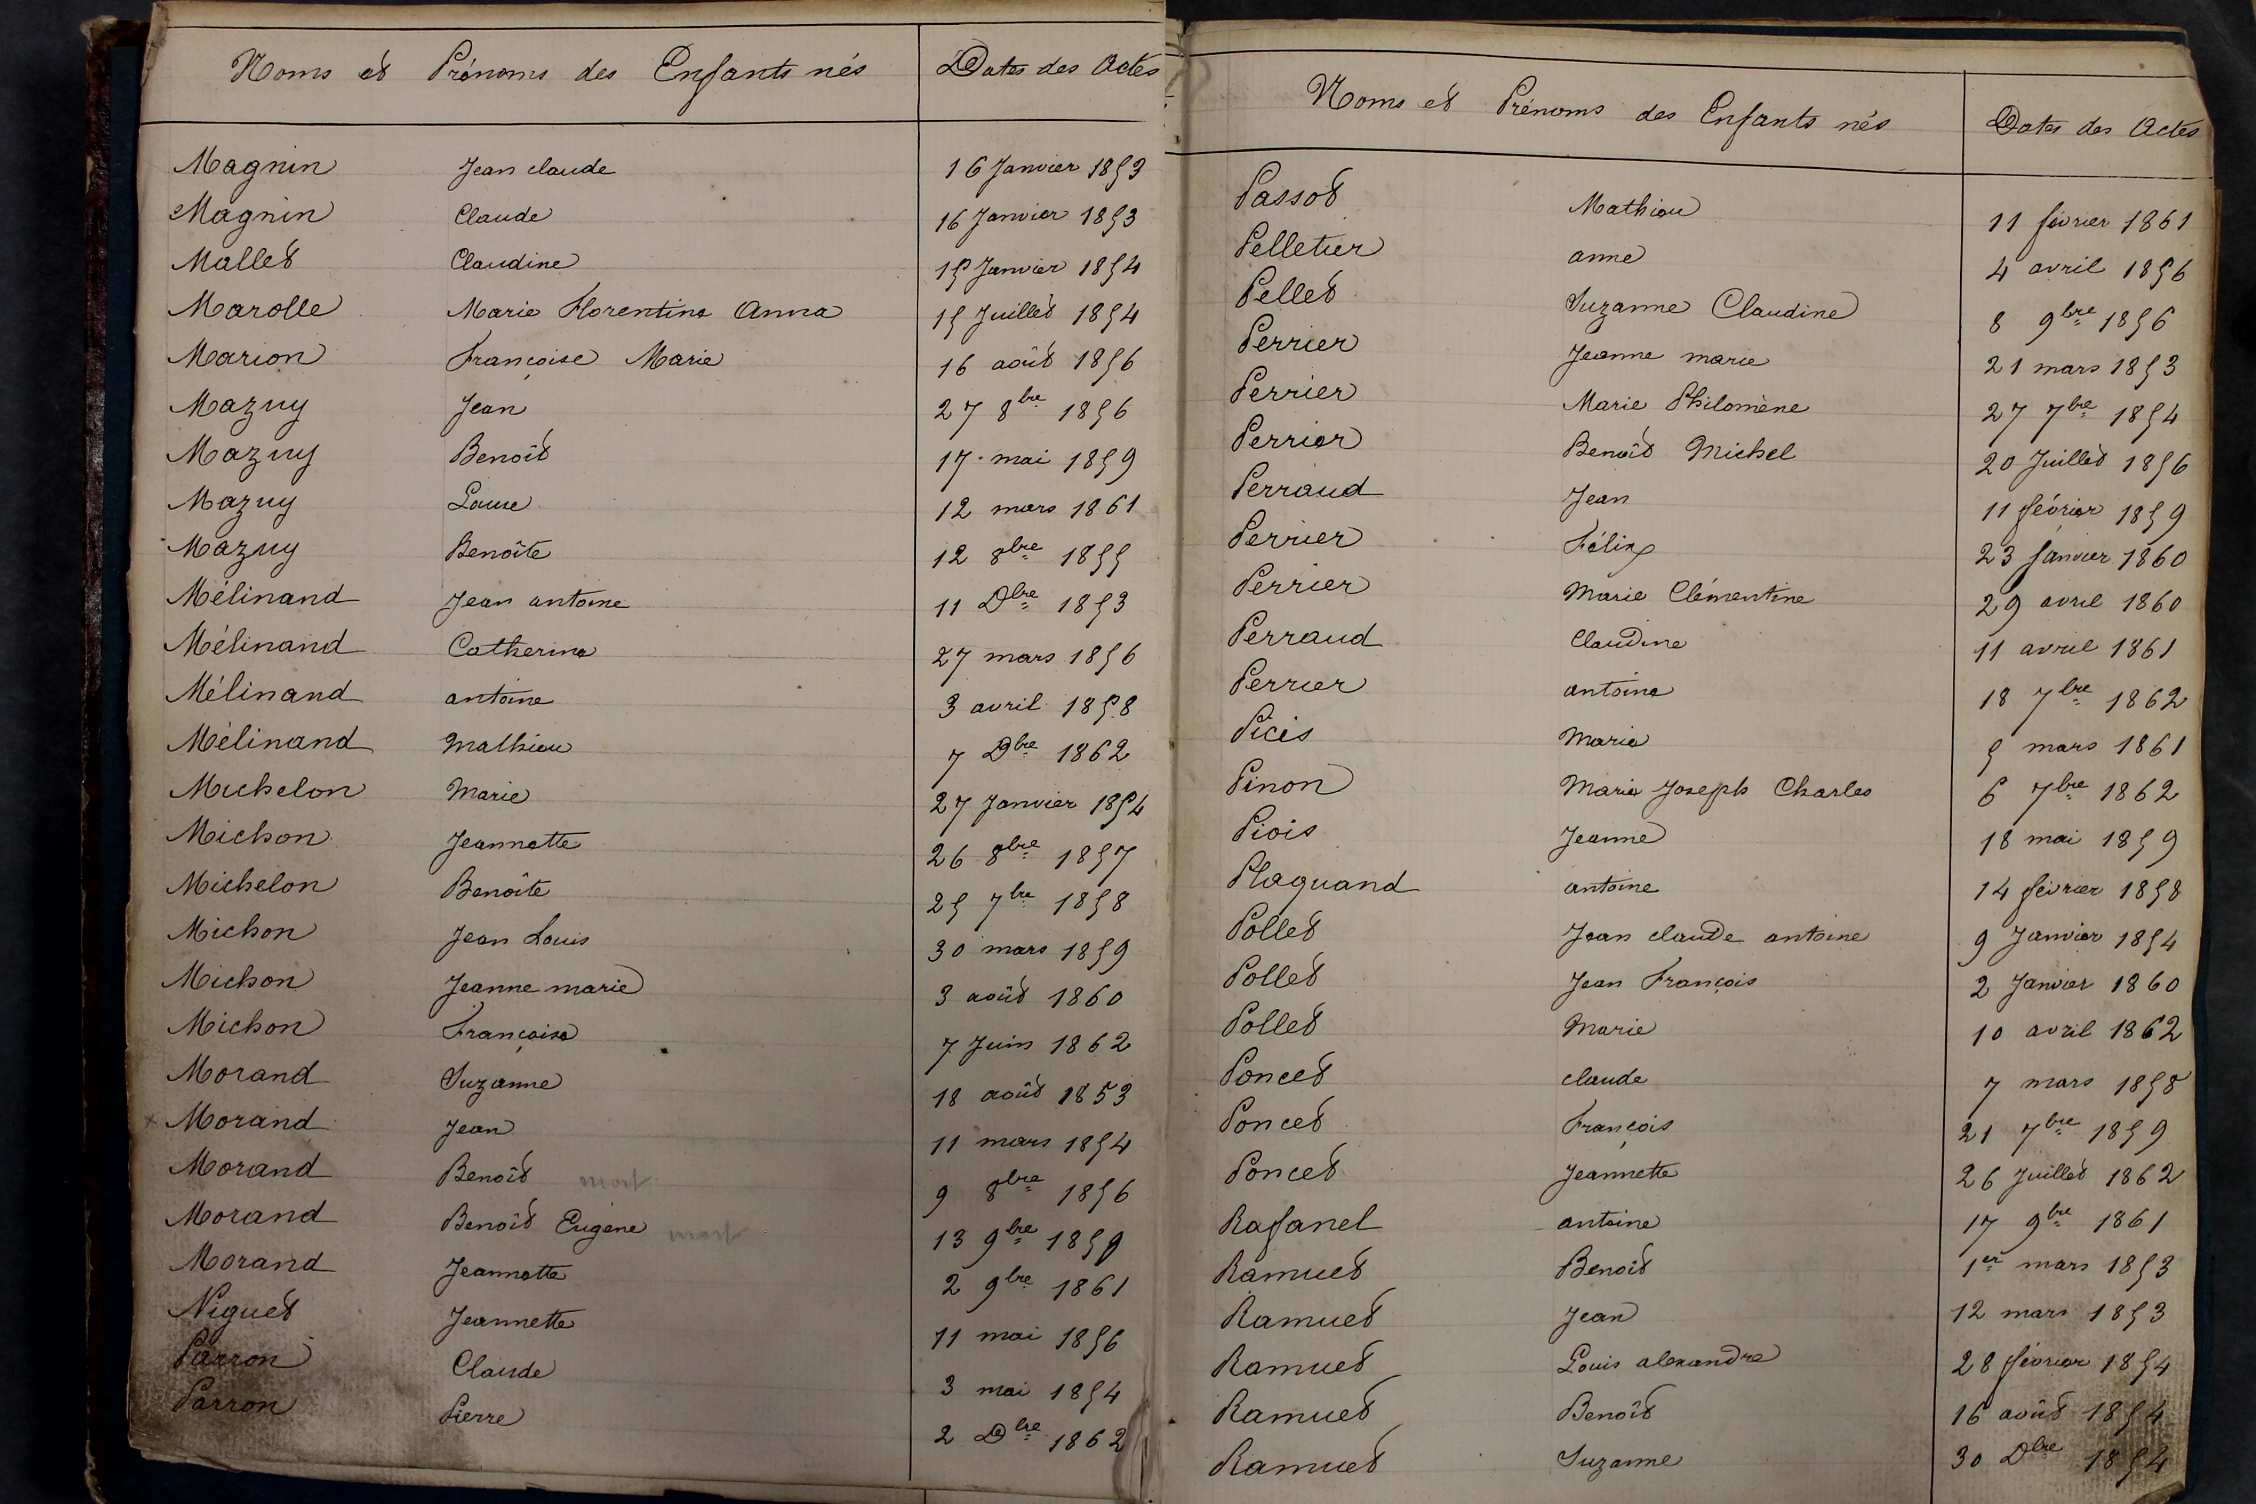 Noms et Prénoms des Enfants nés Dates des Actes
Magnin Jean claude 16 Janvier 1853
Magnin Claude 16 Janvier 1853
Mallet Claudine 15 Janvier 1854
Marolle Marie Florentine Anna 15 Juillet 1854
Marion Françoise Marie 16 août 1856
Mazuy Jean 27 8bre 1856
Mazuy Benoît 17 mai 1859
Mazuy Louise 12 mars 1861
Mazuy Benoîte 12 8bre 1855
Mélinand Jean antoine 11 Dbre 1853
Mélinand Catherine 27 mars 1856
Mélinand antoine 3 avril 1858
Mélinand Mathieu 7 Dbre 1862
Michelon Marie 27 Janvier 1854
Michon Jeannette 26 8bre 1857
Michelon Benoîte 25 7bre 1858
Michon Jean Louis 30 mars 1859
Michon Jeanne marie 3 août 1860
Michon Françoise 7 Juin 1862
Morand Suzanne 18 août 1853
Morand Jean 11 mars 1854
Morand Benoît 9 8bre 1856
Morand Benoît Eugène 13 9bre 1859
Morand Jeannette 2 9bre 1861
Niguet Jeannette 11 mai 1856
Parron Claude 3 mai 1854
Parron Pierre 2 Dbre 1862
Noms et Prénoms des Enfants nés Dates des Actes
Passot Mathieu 11 février 1861
Pelletier anne 4 avril 1856
Pellet Suzanne Claudine 8 9bre 1856
Perrier Jeanne marie 21 mars 1853
Perrier Marie Philomène 27 7bre 1854
Perrier Benoît Michel 20 Juillet 1856
Perraud Jean 11 février 1859
Perrier Félix 23 Janvier 1860
Perrier Marie Clémentine 29 avril 1860
Perraud Claudine 11 avril 1861
Perrier antoine 18 7bre 1862
Marie 5 mars 1861
Pinon Marie Joseph Charles 6 7bre 1862
Jeanne 18 mai 1859
Plaquand antoine 14 février 1858
Pollet Jean claude antoine 9 Janvier 1854
Pollet Jean François 2 Janvier 1860
Pollet Marie 10 avril 1862
Poncet claude 7 mars 1858
Poncet François 21 7bre 1859
Poncet Jeannette 26 Juillet 1862
Rafanel antoine 17 9bre 1861
Ramuet Benoît 1er mars 1853
Ramuet Jean 12 mars 1853
Ramuet Louis alexandre 28 février 1854
Ramuet Benoît 16 août 1854
Ramuet Suzanne 30 Dbre 1854